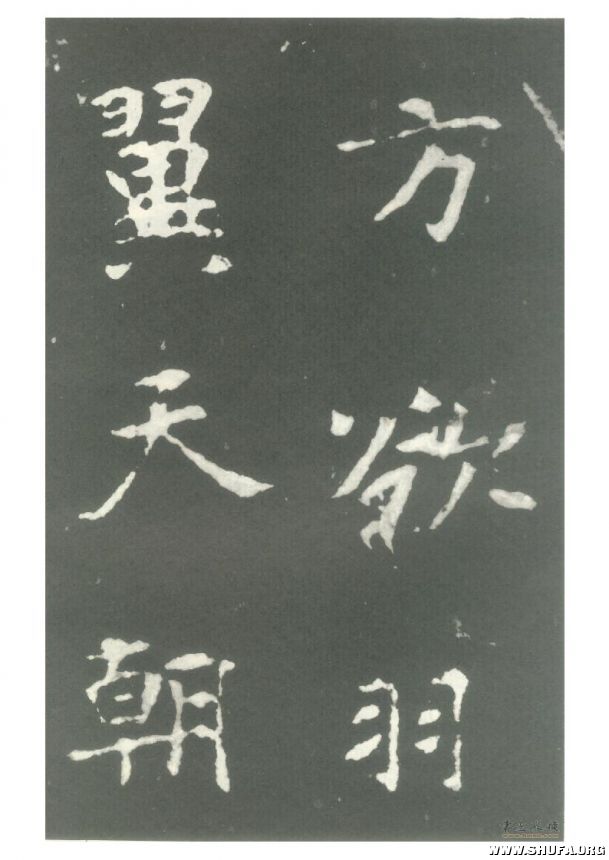 方欲羽
翼天朝
WWW.SHUFA.ORG